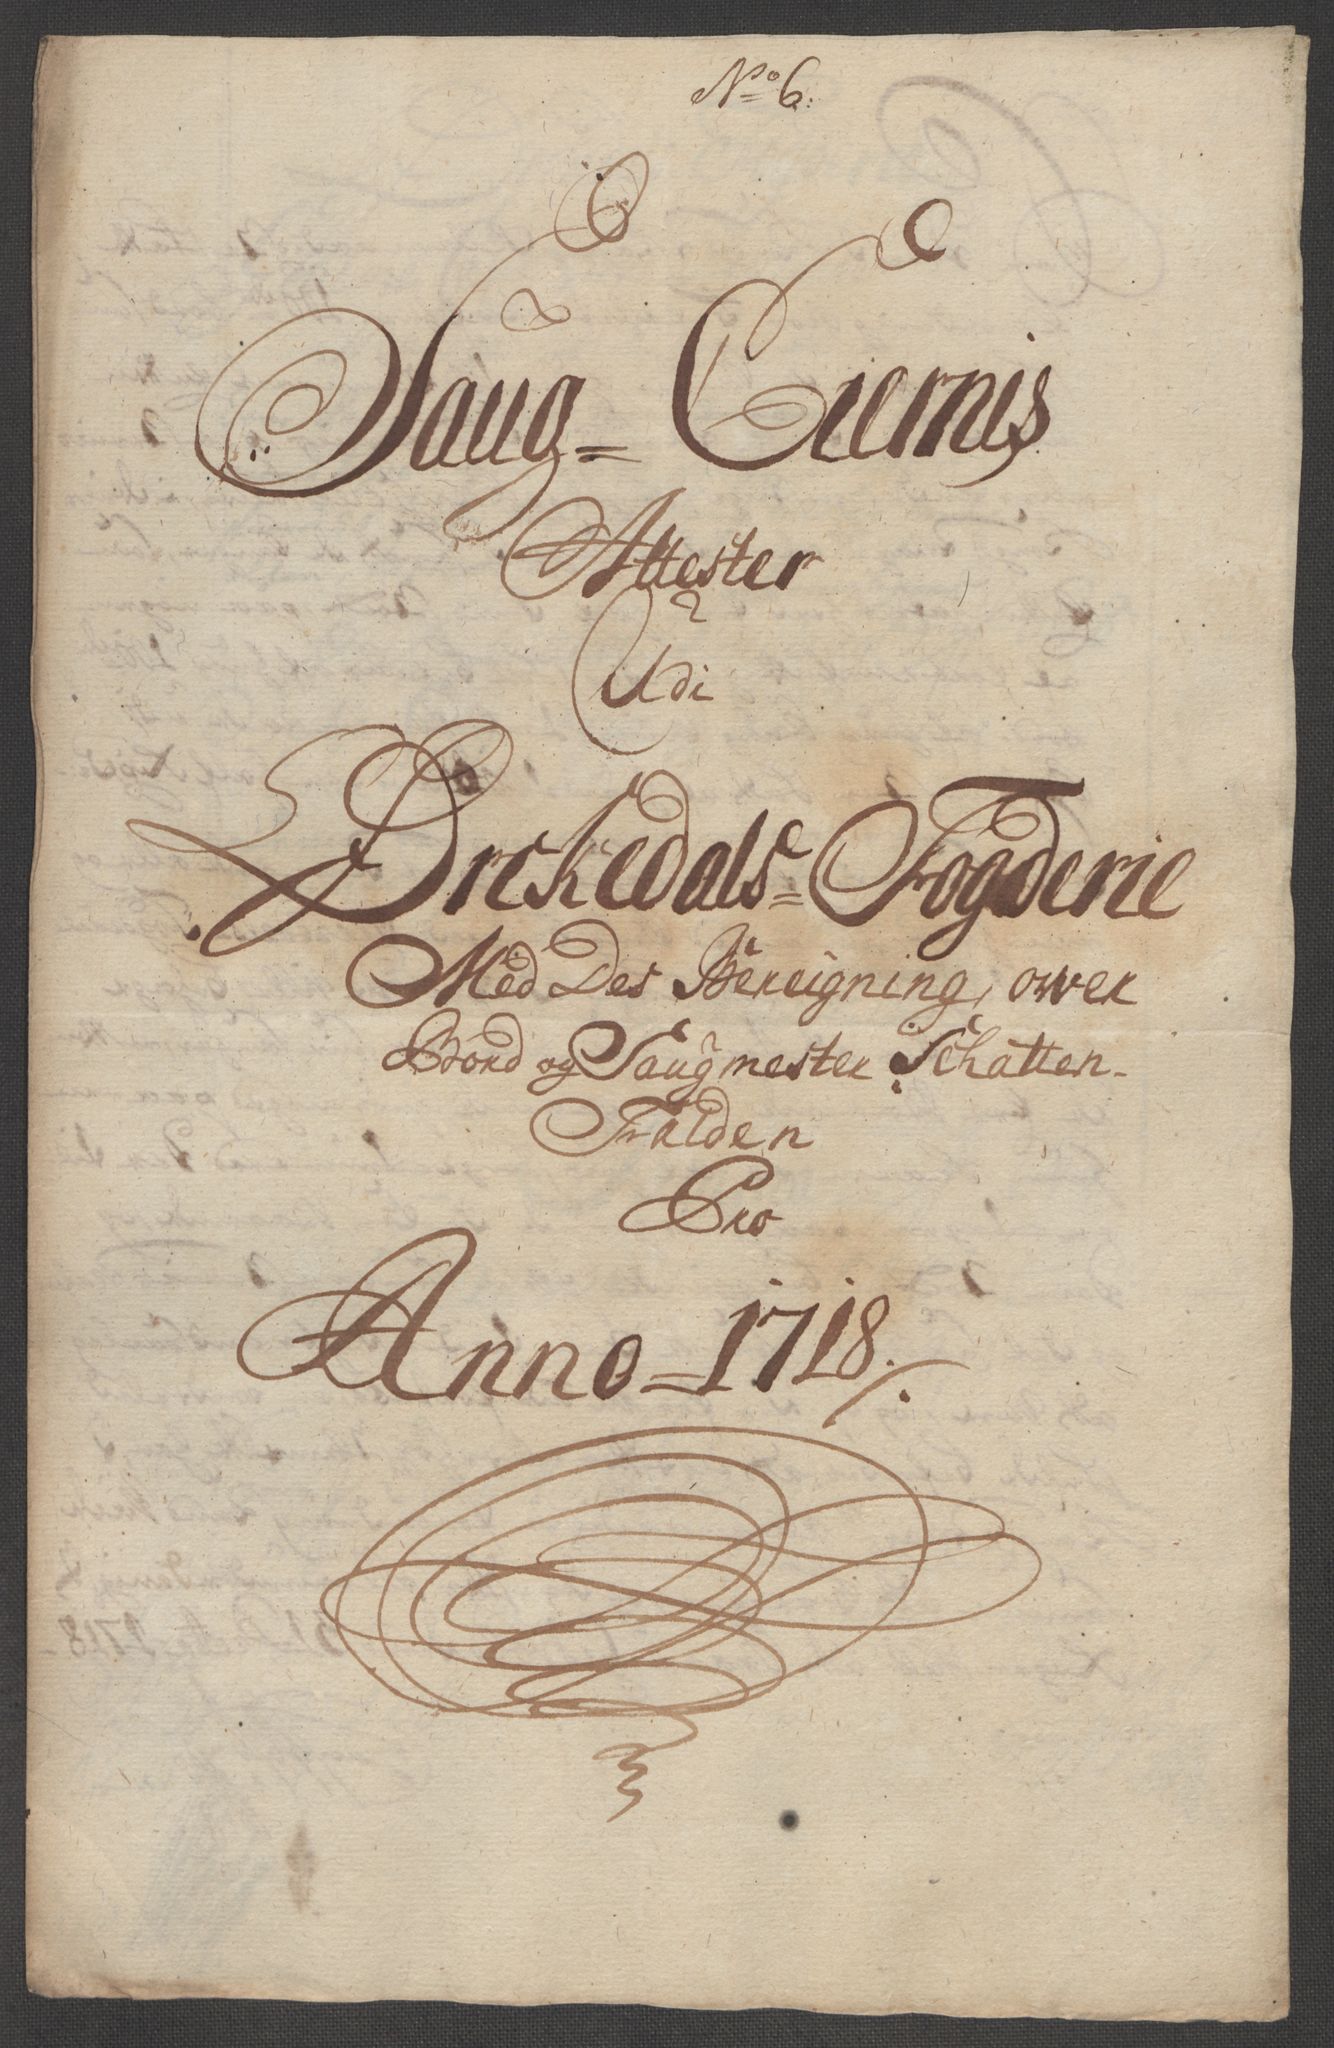 No 6.
Saug= Ciernis
Attester
Udi
Orckedals= Fogderie
Med Des Bereigning, over
Bord og Saugmester Schatten-
Falden
Pro
Anno=1718.